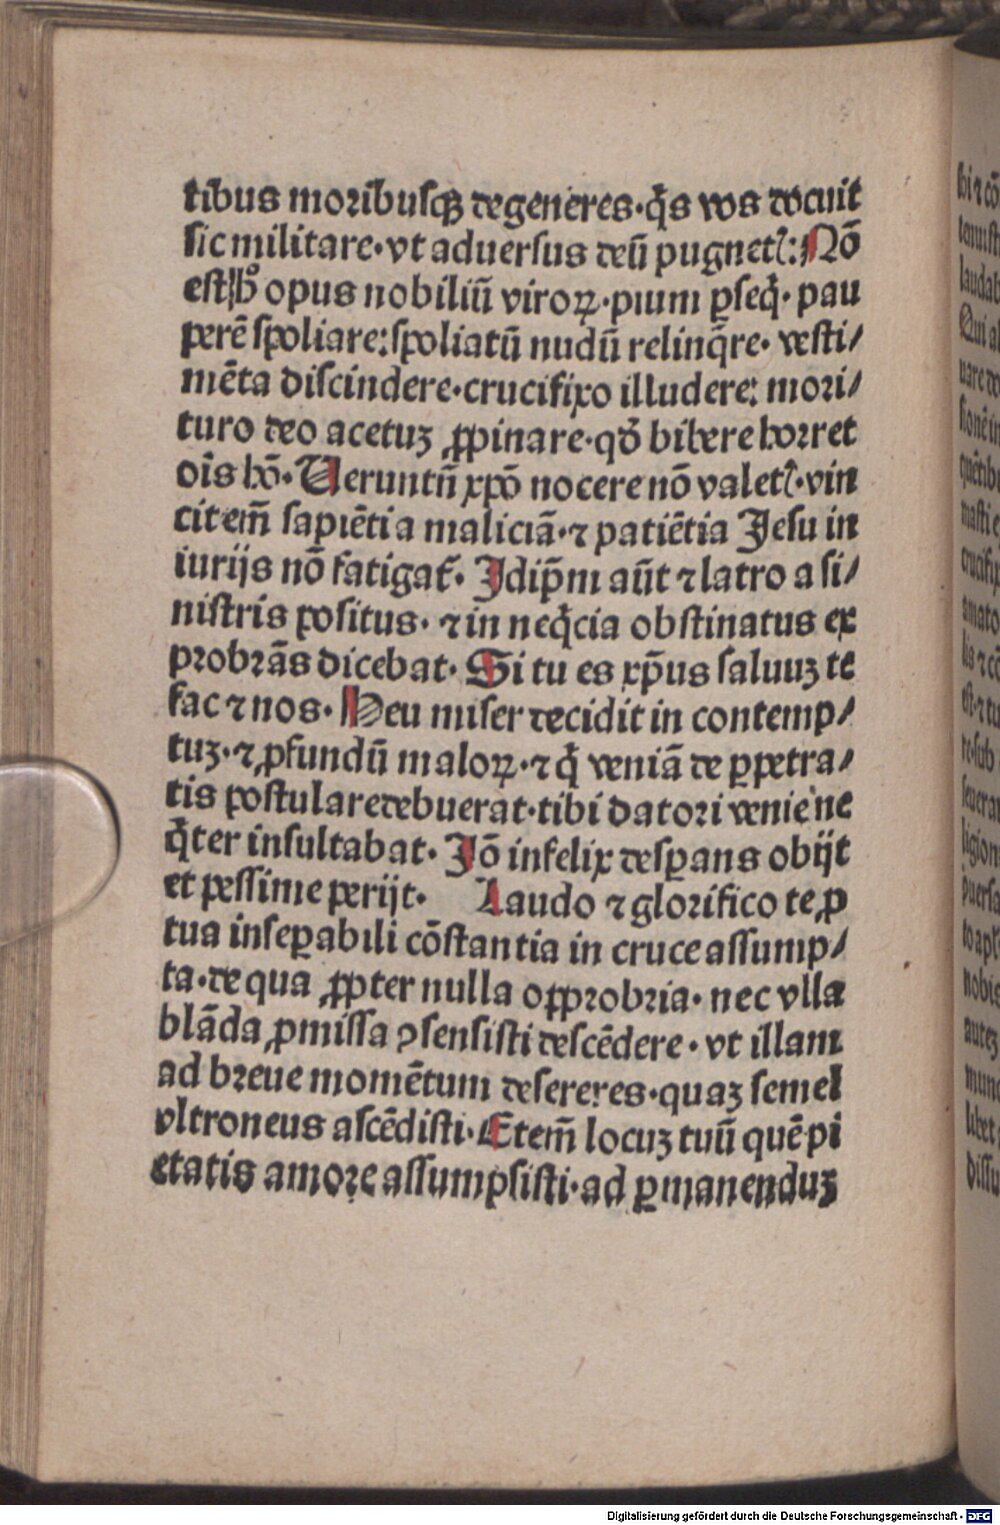 tibus moribusqꝫ degeneres·q̄s vos docuit
sic militare·vt aduersus deū pugnetꝭ:Nō
est hͦ opus nobiliū viroꝝ·pium ꝑseq̄·pau
perē spoliare:spoliatū nudū relinq̄re·vesti/
mēta discindere·crucifixo illudere: mori/
turo deo acetuꝫ ꝓpinare·qđ bibere horret
oīs hō·Ueruntn̄ xp̄o nocere nō valetꝭ·vin
cit em̄ sapiētia maliciā·⁊ patiētia Jesu in
iurijs nō fatigat̄·Jdip̄m aūt ⁊ latro a si/
nistris positus·⁊ in neq̄cia obstinatus ex
probrās dicebat·Si tu es xp̄us saluuꝫ te
fac ⁊ nos·Heu miser decidit in contemp/
tuꝫ·⁊ ꝓfundū maloꝝ·⁊ q̄ veniā de ꝑpetra/
tis postulare debuerat·tibi datori venie ne
q̄ter insultabat·Jō infelix desꝑans obijt
et pessime perijt· Laudo ⁊ glorifico te ꝓ
tua inseꝑabili cōstantia in cruce assump/
ta·de qua ꝓpter nulla opprobria·nec vlla
blāda ꝓmissa ꝯsensisti descēdere·vt illam
ad breue momētum desereres·quaꝫ semel
vltroneus ascēdisti·Etem̄ locuꝫ tuū quē pi
etatis amore assumpsisti·ad ꝑmanenduꝫ
Digitalisierung gefördert durch die Deutsche Forschungsgemeinschaft - DFG